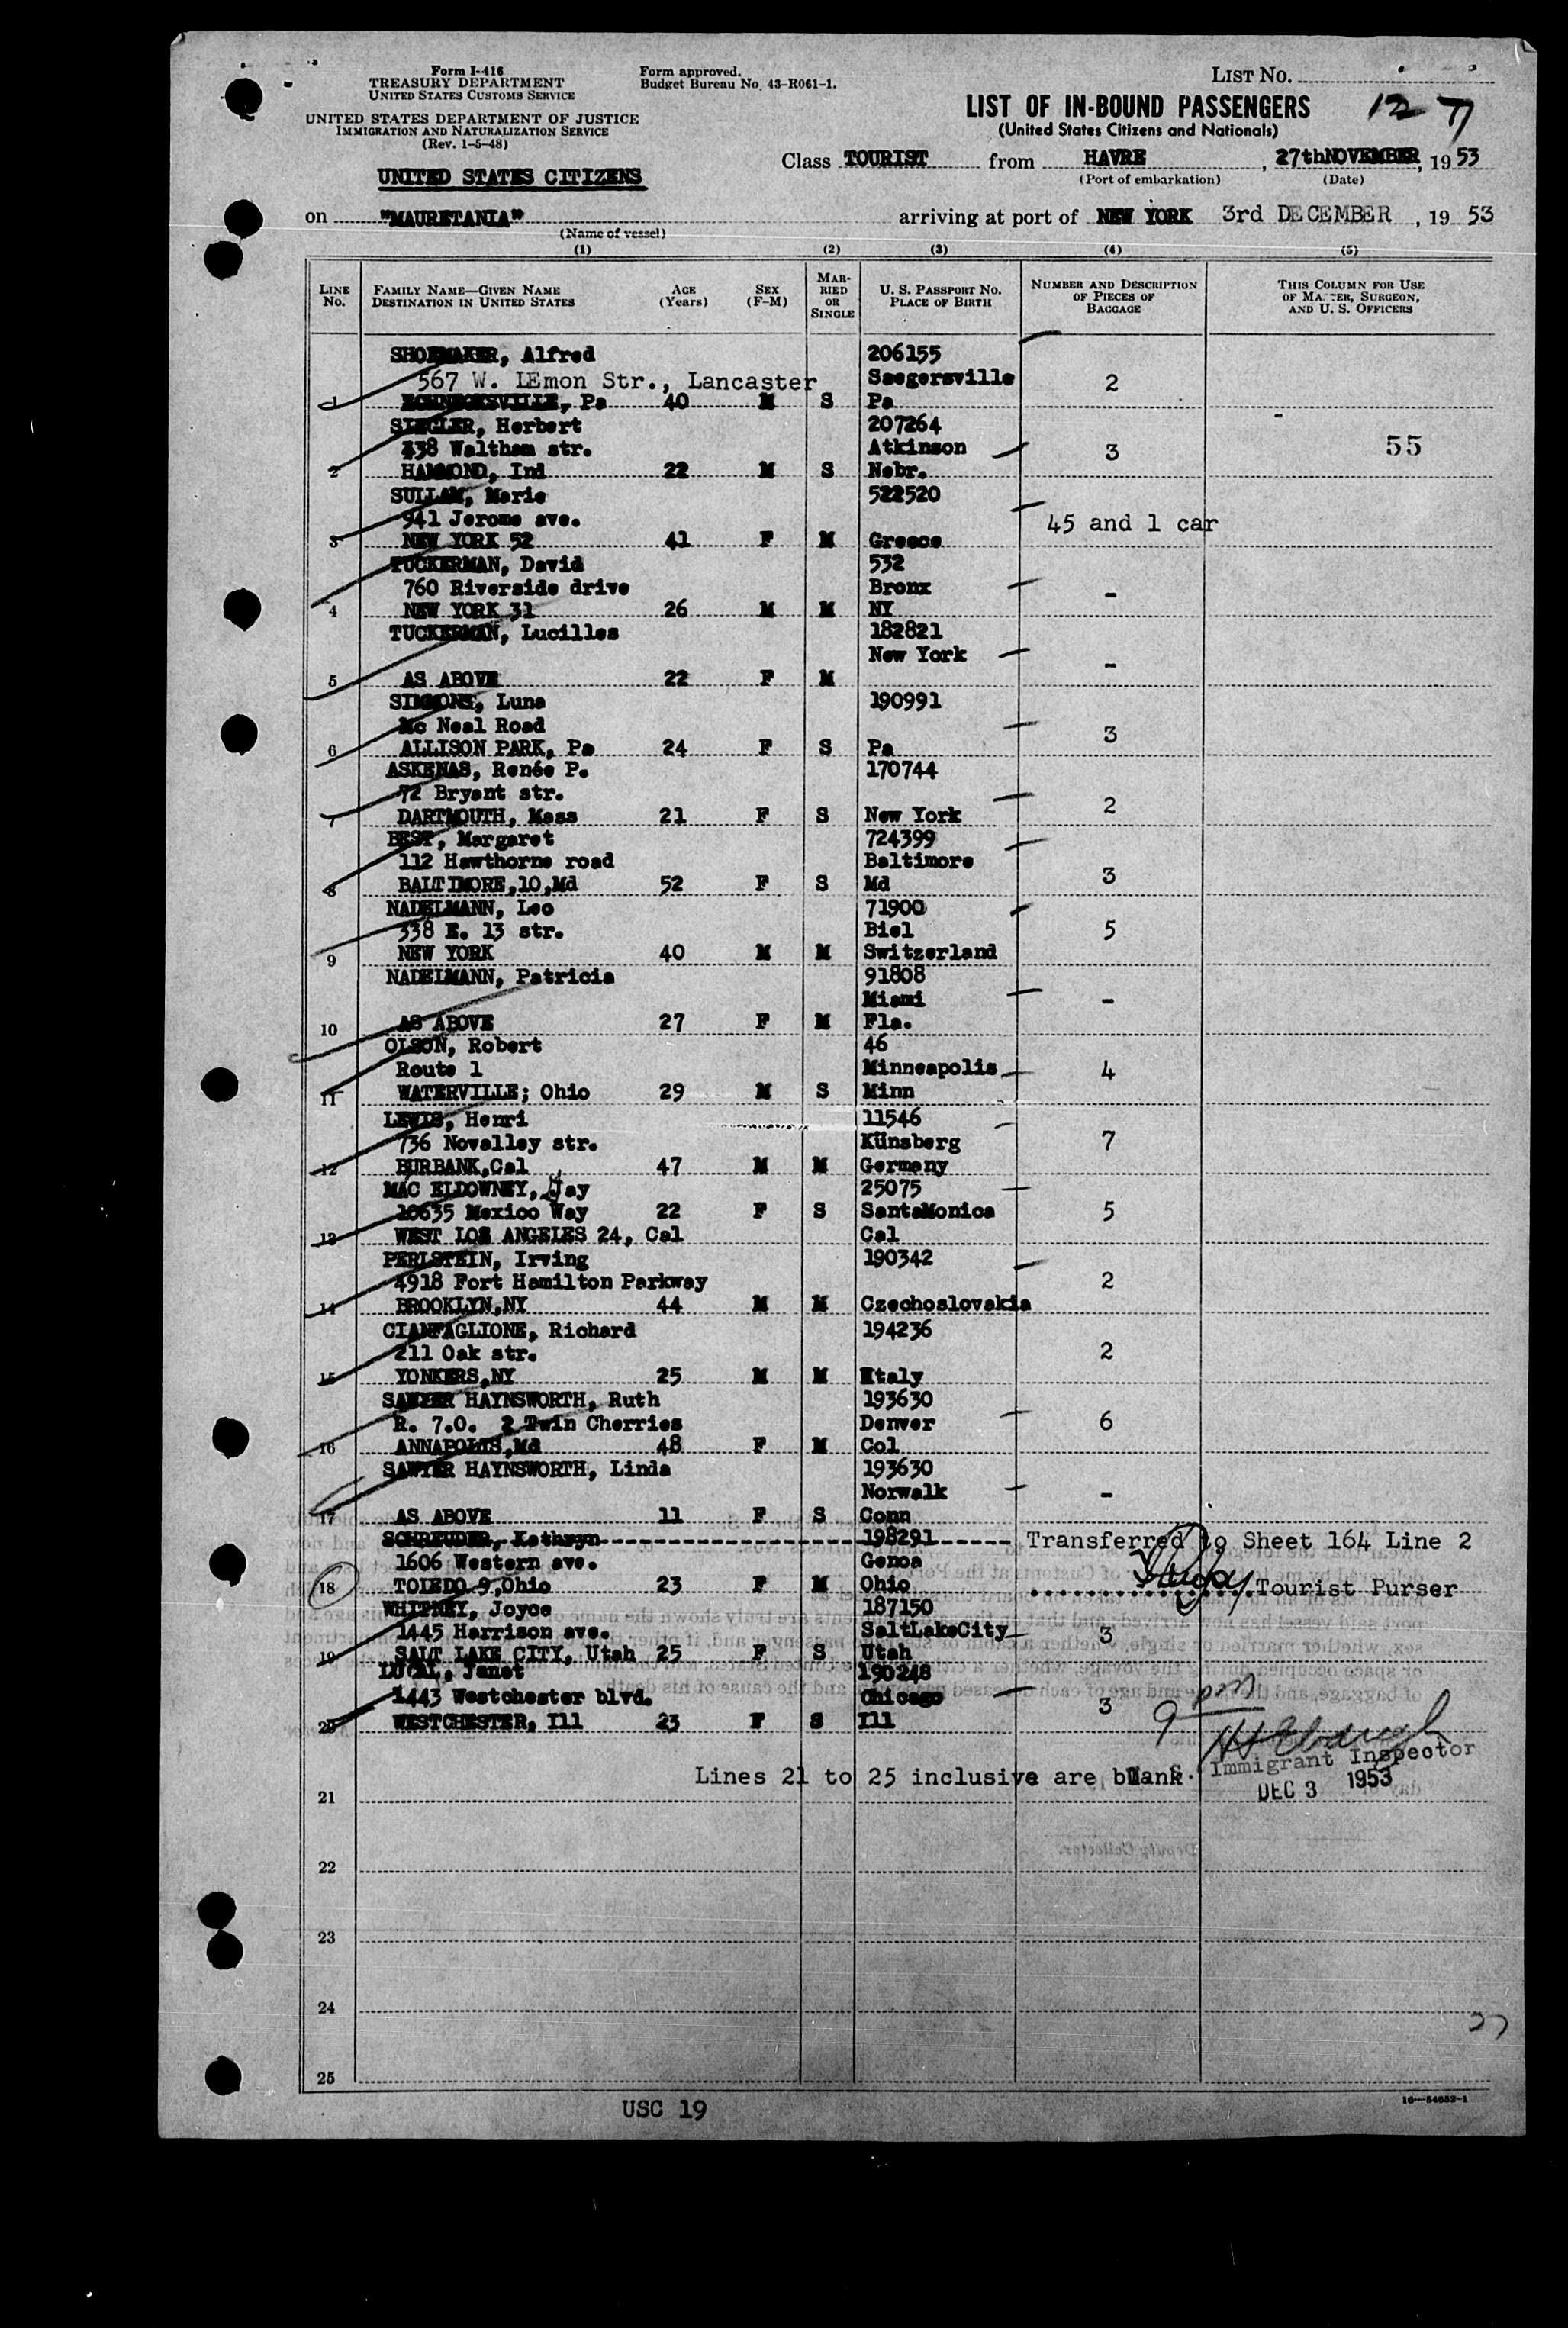 Form I-416
TREASURY DEPARTMENT
UNITED STATES CUSTOMS SERVICE
UNITED STATES DEPARTMENT OF JUSTICE
IMMIGRATION AND NATURALIZATION SERVICE
(Rev. 1-5-48)
Form approved.
Budget Bureau No. 43-R061-1.
LIST NO.
LIST OF IN-BOUND PASSENGERS 12 7
(United States Citizens and Nationals)
Class TOURIST from HAVRE, 27thNOVEMBER, 19 53
(Port of embarkation) (Date)
UNITED STATES CITIZENS
on "MAURETANIA" arriving at port of NEW YORK 3rd DECEMBER, 19 53
(Name of vessel)
(1) (2) (3) (4) (5)
LINE NO. FAMILY NAME—GIVEN NAME DESTINATION IN UNITED STATES AGE (Years) SEX (F-M) MARRIED OR SINGLE U. S. PASSPORT NO. PLACE OF BIRTH NUMBER AND DESCRIPTION OF PIECES OF BAGGAGE THIS COLUMN FOR USE OF MASTER, SURGEON, AND U. S. OFFICERS
SHOEMAKER, Alfred 206155
567 W. LEmon Str., Lancaster Saegersville 2
1 SCHNECKSVILLE, Pa 40 M S Pa
SIEGLER, Herbert 207264
438 Waltham str. Atkinson 3 55
2 HAMMOND, Ind 22 M S Nebr.
SULLAM, Marie 522520
941 Jerome ave. 45 and 1 car
3 NEW YORK 52 41 F M Greece
TUCKERMAN, David 532
760 Riverside drive Bronx -
4 NEW YORK 31 26 M M NY
TUCKERMAN, Lucilles 182821
New York -
5 AS ABOVE 22 F M
SIMMONS, Luna 190991
Mc Neal Road 3
6 ALLISON PARK, Pa 24 F S Pa
ASKENAS, Renée P. 170744
72 Bryant str. 2
7 DARTMOUTH, Mass 21 F S New York
BEST, Margaret 724399
112 Hawthorne road Baltimore 3
8 BALTIMORE,10,Md 52 F S Md
NADELMANN, Leo 71900
338 E. 13 str. Biel 5
9 NEW YORK 40 M M Switzerland
NADELMANN, Patricia 91808
Miami -
10 AS ABOVE 27 F M Fla.
OLSON, Robert 46
Route 1 Minneapolis 4
11 WATERVILLE; Ohio 29 M S Minn
LEWIS, Henri 11546
736 Novalley str. Künsberg 7
12 BURBANK,Cal 47 M M Germany
MAC ELDOWNEY, Jay 25075
10635 Mexico Way 22 F S SantaMonica 5
13 WEST LOS ANGELES 24, Cal Cal
PERLSTEIN, Irving 190342
4918 Fort Hamilton Parkway 2
14 BROOKLYN,NY 44 M M Czechoslovakia
CIANFAGLIONE, Richard 194236
211 Oak str. 2
15 YONKERS,NY 25 M M Italy
SAWYER HAYNSWORTH, Ruth 193630
R. 7.0. 2 Twin Cherries Denver 6
16 ANNAPOLIS,Md 48 F M Col
SAWYER HAYNSWORTH, Linda 193630
Norwalk -
17 AS ABOVE 11 F S Conn
SCHREUDER, Kathryn 198291 Transferred to Sheet 164 Line 2
1606 Western ave. Genoa
18 TOLEDO 9,Ohio 23 F M Ohio Tourist Purser
WHITNEY, Joyce 187150
1445 Harrison ave. SaltLakeCity 3
19 SALT LAKE CITY, Utah 25 F S Utah
LUCAL, Janet 190248
1443 Westchester blvd. Chicago 3 9 pm
20 WESTCHESTER, Ill 23 F S Ill
Lines 21 to 25 inclusive are blank. Immigrant Inspector
DEC 3 1953
21
22
23
24
25
USC 19
16—54052-1